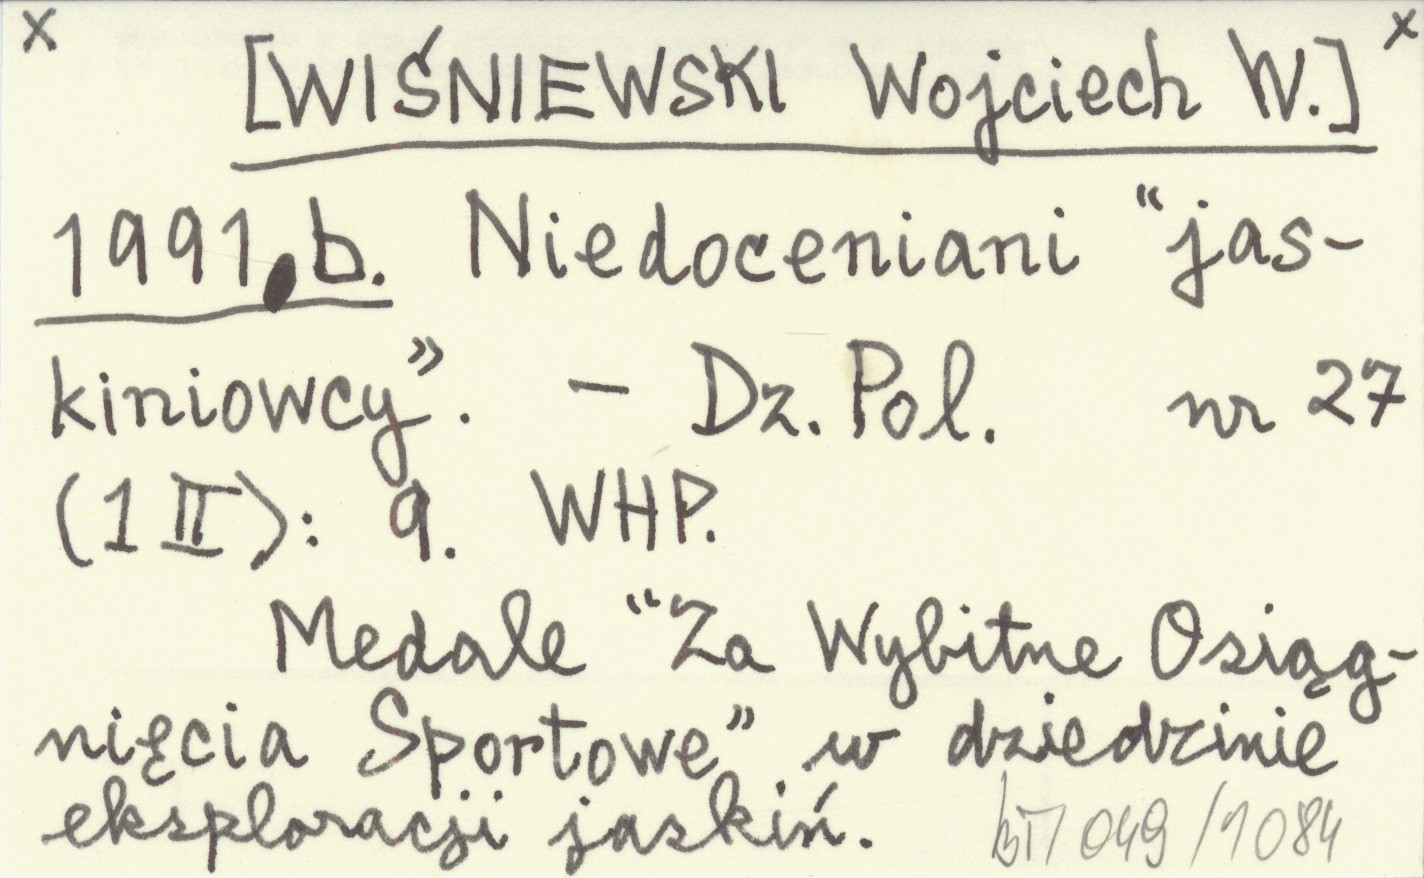 x x
[WIŚNIEWSKI Wojciech W.]
1991.b. Niedoceniani “jas-
kiniowcy”. - Dz. Pol. nr 27
(1 II): 9. WHP.
Medale “Za Wybitne Osiąg-
nięcia Sportowe” w dziedzinie
eksploracji jaskiń. bT/049/1084